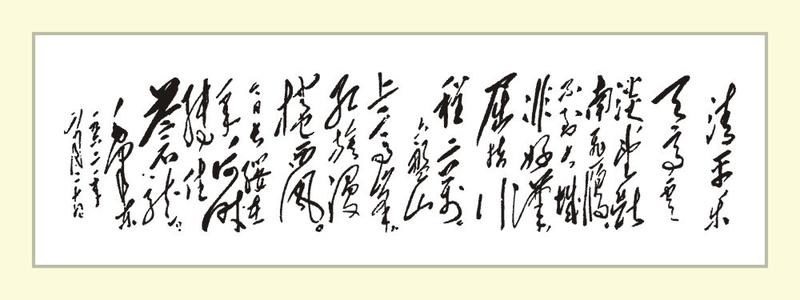 清平乐
天高云
淡，望断
南飞雁。
不到长城
非好汉，
屈指行
程二万。
六盘山
上高峰，
红旗漫
捲西风。
今日长缨在
手，何时
缚住
苍龙？
毛泽东